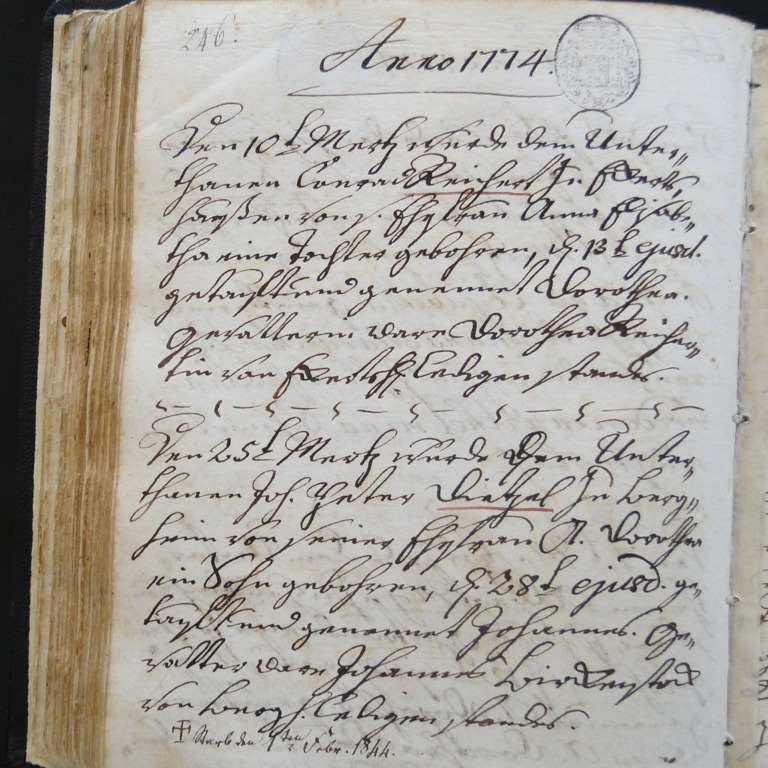 246.
Anno 1774.
Den 10t Mertz wurde dem Unter„
thanen Conrad Reichert in Efferts„
haußen von s. Ehefrau Anna Elisabe„
tha eine Tochter gebohren, d. 13t ejusd.
getauft und genennet Dorothea.
Gevatterin ware Dorothea Reicher„
tin von Effertsh. ledigen standes.
Den 25t Mertz wurde dem Unter„
thanen Joh. Peter Dietzel in Berg„
heim von seiner Ehefrau A. Dorothea
ein Sohn gebohren, d. 28t ejusd. ge„
tauft und genennet Johannes. Ge„
vatter ware Johannes Birckenstock
von Bergh. ledigen standes.
Starb den 1ten Febr. 1844.